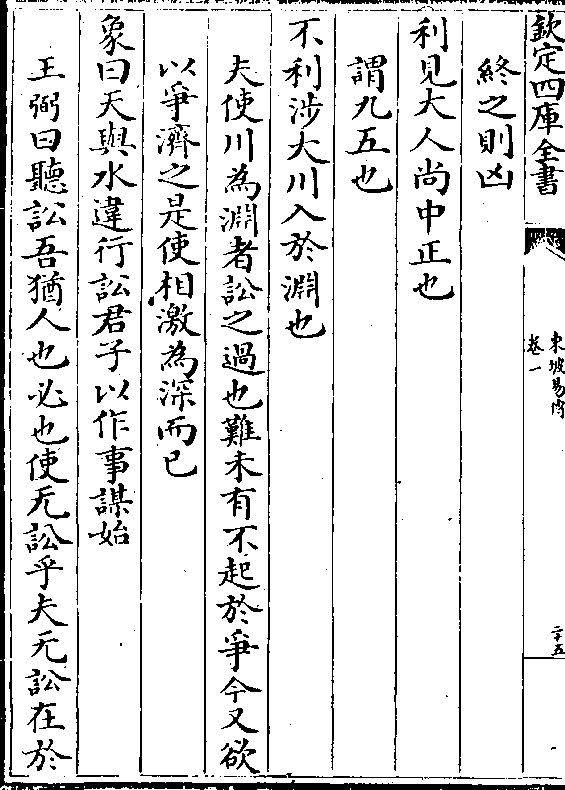 欽定四庫全書
東坡易傳
卷一
二十五
終之則凶
利見大人尚中正也
謂九五也
不利涉大川入於淵也
夫使川為淵者訟之過也難未有不起於爭今又欲
以爭濟之是使相激為深而已
象曰天與水違行訟君子以作事謀始
王弼曰聽訟吾猶人也必也使无訟乎夫无訟在於